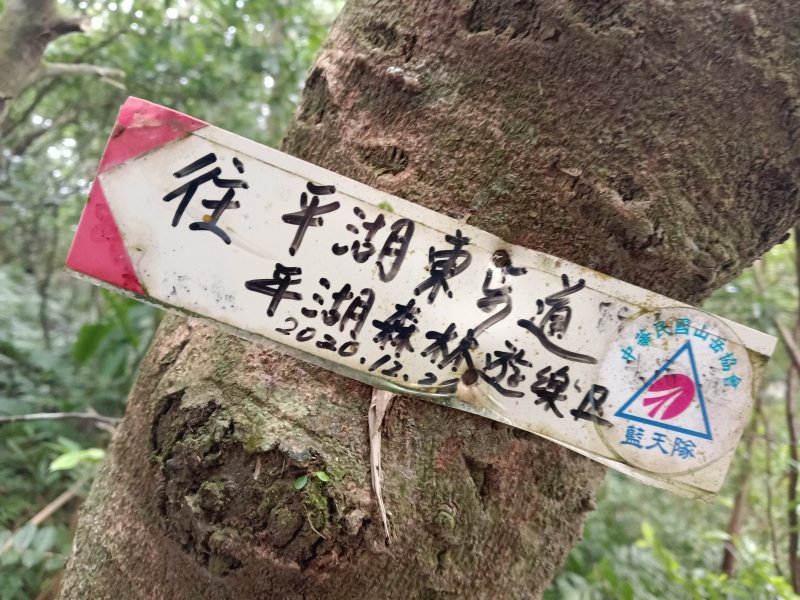 往 平湖東步道
平湖森林遊樂區
2020.12.2
中華民國山岳協會
藍天隊